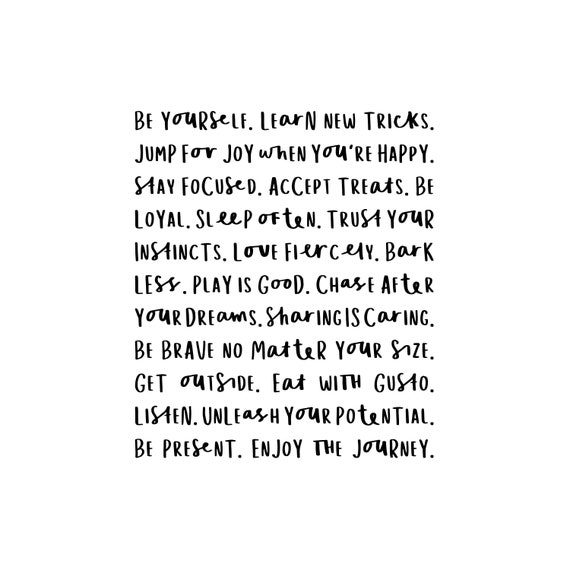 BE YOURSELF. LEARN NEW TRICKS.
JUMP FOR JOY WHEN YOU'RE HAPPY.
STAY FOCUSED. ACCEPT TREATS. BE
LOYAL. SLEEP OFTEN. TRUST YOUR
INSTINCTS. LOVE FIERCELY. BARK
LESS. PLAY IS GOOD. CHASE AFTER
YOUR DREAMS. SHARING IS CARING.
BE BRAVE NO MATTER YOUR SIZE.
GET OUTSIDE. EAT WITH GUSTO.
LISTEN. UNLEASH YOUR POTENTIAL.
BE PRESENT. ENJOY THE JOURNEY.